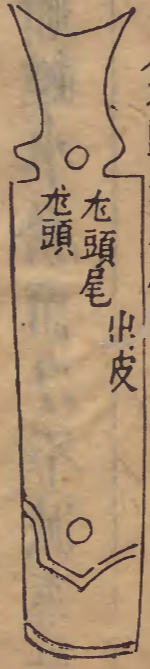 出皮
尨頭尾
尨頭